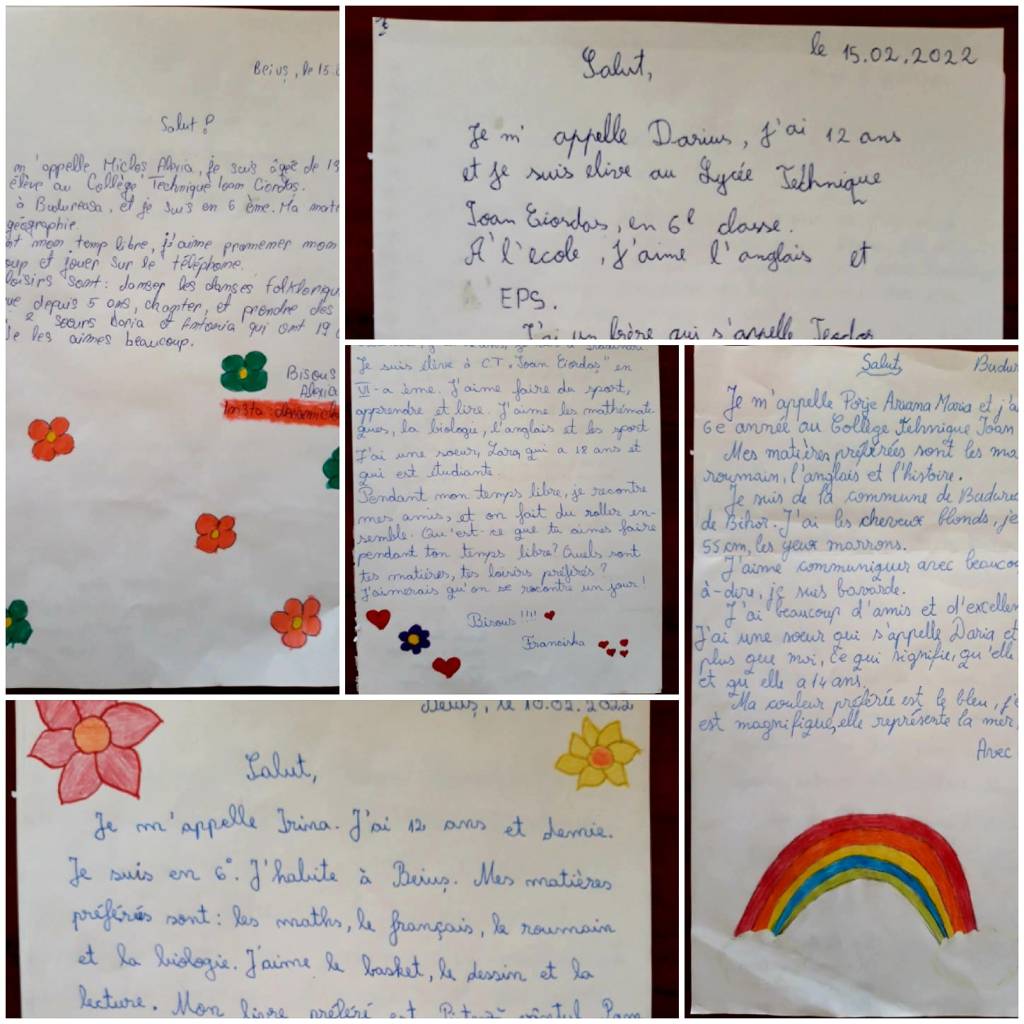 Beiuș, le 15.
Salut!
m'appelle Micloș Alexia, je suis âgée de 13
élève au Collège Technique Ioan Ciordaș.
à Budureasa, et je suis en 6 ème. Ma mate
géographie.
nt mon temp libre, j'aime promemer mon
oup et jouer sur le téléphone.
loisirs sont: danser les danses folklorique
ue depuis 5 ans, chanter, et prendre des
2 soeurs Daria et Antonia qui ont 19
Je les aimes beaucoup.
Bisous
Alexia
Insta:
le 15.02.2022
Salut,
Je m'appelle Darius, J'ai 12 ans
et Je suis elive au Lycée Tethnique
Ioan Ciordas, en 6e classe.
A l'école, J'aime l'anglais et
EPS.
J'ai un frère qui s'appelle Teodor
Je suis élève à C.T. "Ioan Ciordaș" en
VI-a ème. J'aime faire du sport,
apprendre et lire. J'aime les mathémati
ques, la biologie, l'anglais et les sport
J'ai une soeur, Lara, qui a 18 ans et
qui est étudiante.
Pendant mon temps libre, je recontre
mes amis, et on fait du roller en-
semble. Qu'est-ce que tu aimes faire
pendant ton temps libre? Quels sont
tes matières, tes loisirs préférés?
J'aimerais qu'on se recontre un jour!
Bisous !!!!
Franciska
Salut, Budur
Je m'appelle Porje Ariana Maria et j'a
6e année au Collège Tehnique Ioan
Mes matières préférées sont les ma
roumain, l'anglais et l'histoire.
Je suis de la commune de Budurea
de Bihor. J'ai les cheveux blonds, je
55 cm, les yeux marrons.
J'aime communiquer avec beaucou
à-dire, je suis bavarde.
J'ai beaucoup d'amis et d'excellen
J'ai une soeur qui s'appelle Daria et
plus que moi, ce qui signifie, qu'elle
et qu'elle a 14 ans.
Ma couleur préférée est le bleu, je
est magnifique, elle représente la mer,
Avec
Beiuș, le 10.02.2022
Salut,
Je m'appelle Irina. J'ai 12 ans et demie.
Je suis en 6e. J'habite à Beiuș. Mes matières
préférés sont: les maths, le français, le roumain
et la biologie. J'aime le basket, le dessin et la
lecture. Mon livre préféré est